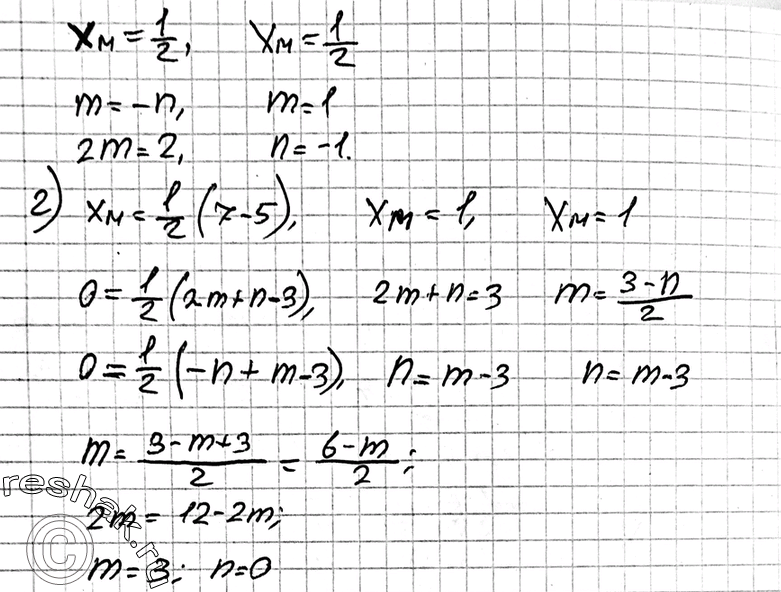 xм = 1/2, xм = 1/2
m = -n, m = 1
2m = 2, n = -1.
2) xм = 1/2 (7-5), xм = 1, xм = 1
0 = 1/2 (2m+n-3), 2m+n=3 m = (3-n)/2
0 = 1/2 (-n+m-3), n = m-3 n = m-3
m = (3-m+3)/2 = (6-m)/2;
2m = 12-2m;
m = 3; n=0
reshak.ru
©